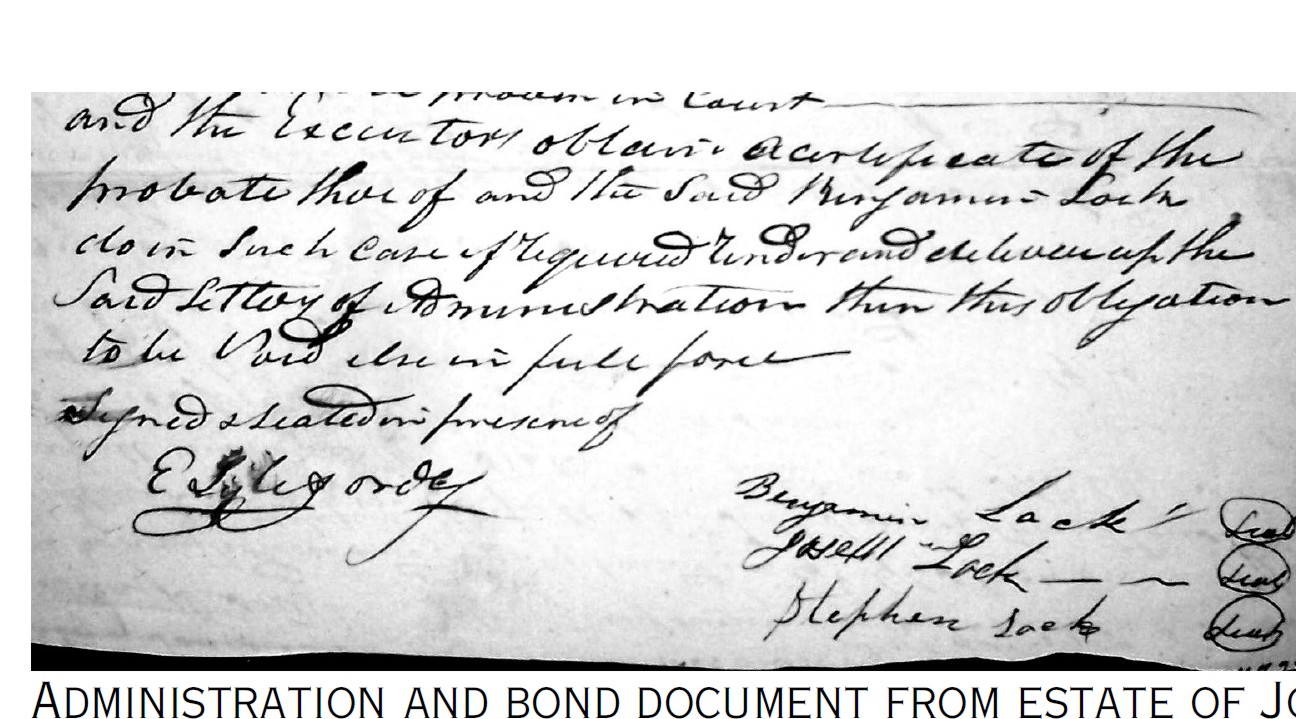 in Court
and the Executors obtain a certificate of the
probate thereof and the Said Benjamin Lack
do in Such Case if required render and deliver up the
Said Letters of Administration then this obligation
to be Void else in full force
Signed & Sealed in presence of
E
Benjamin Lack Seal
Joseph Lack Seal
Stephen Lack Seal
ADMINISTRATION AND BOND DOCUMENT FROM ESTATE OF JO